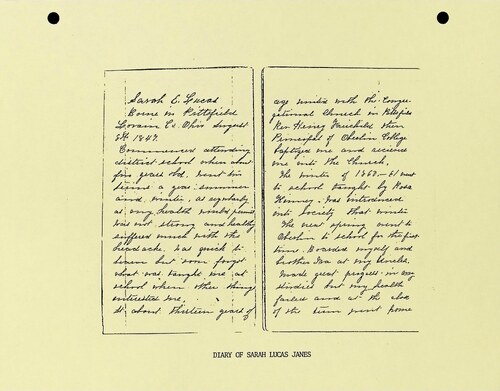 Sarah E. Lucas
Borne in Pittsfield
Lorain Co. Ohio August
5th 1847.
Commenced attending
district school when about
five years old. Went six
terms a year summer
and winter, as regularly
as my health would permit
was not strong and healthy
suffered much with the
headache. Was quick to
learn but soon forgot
what was taught me at
school when other things
interested me.
At about thirteen years of
age united with the Congre-
gational Church in Pittsfield
Rev Henry Fairchild then
Principal of Oberlin College
baptized me and received
me into the Church.
The winter of 1860-61 went
to school taught by Rosa
Kinney. Was introduced
into society that winter.
The next spring went to
Oberlin to school for the first
time. Boarded myself and
brother Ira at my Uncles.
Made great progress in my
studies but my health
failed and at the close
of the term went home
DIARY OF SARAH LUCAS JANES